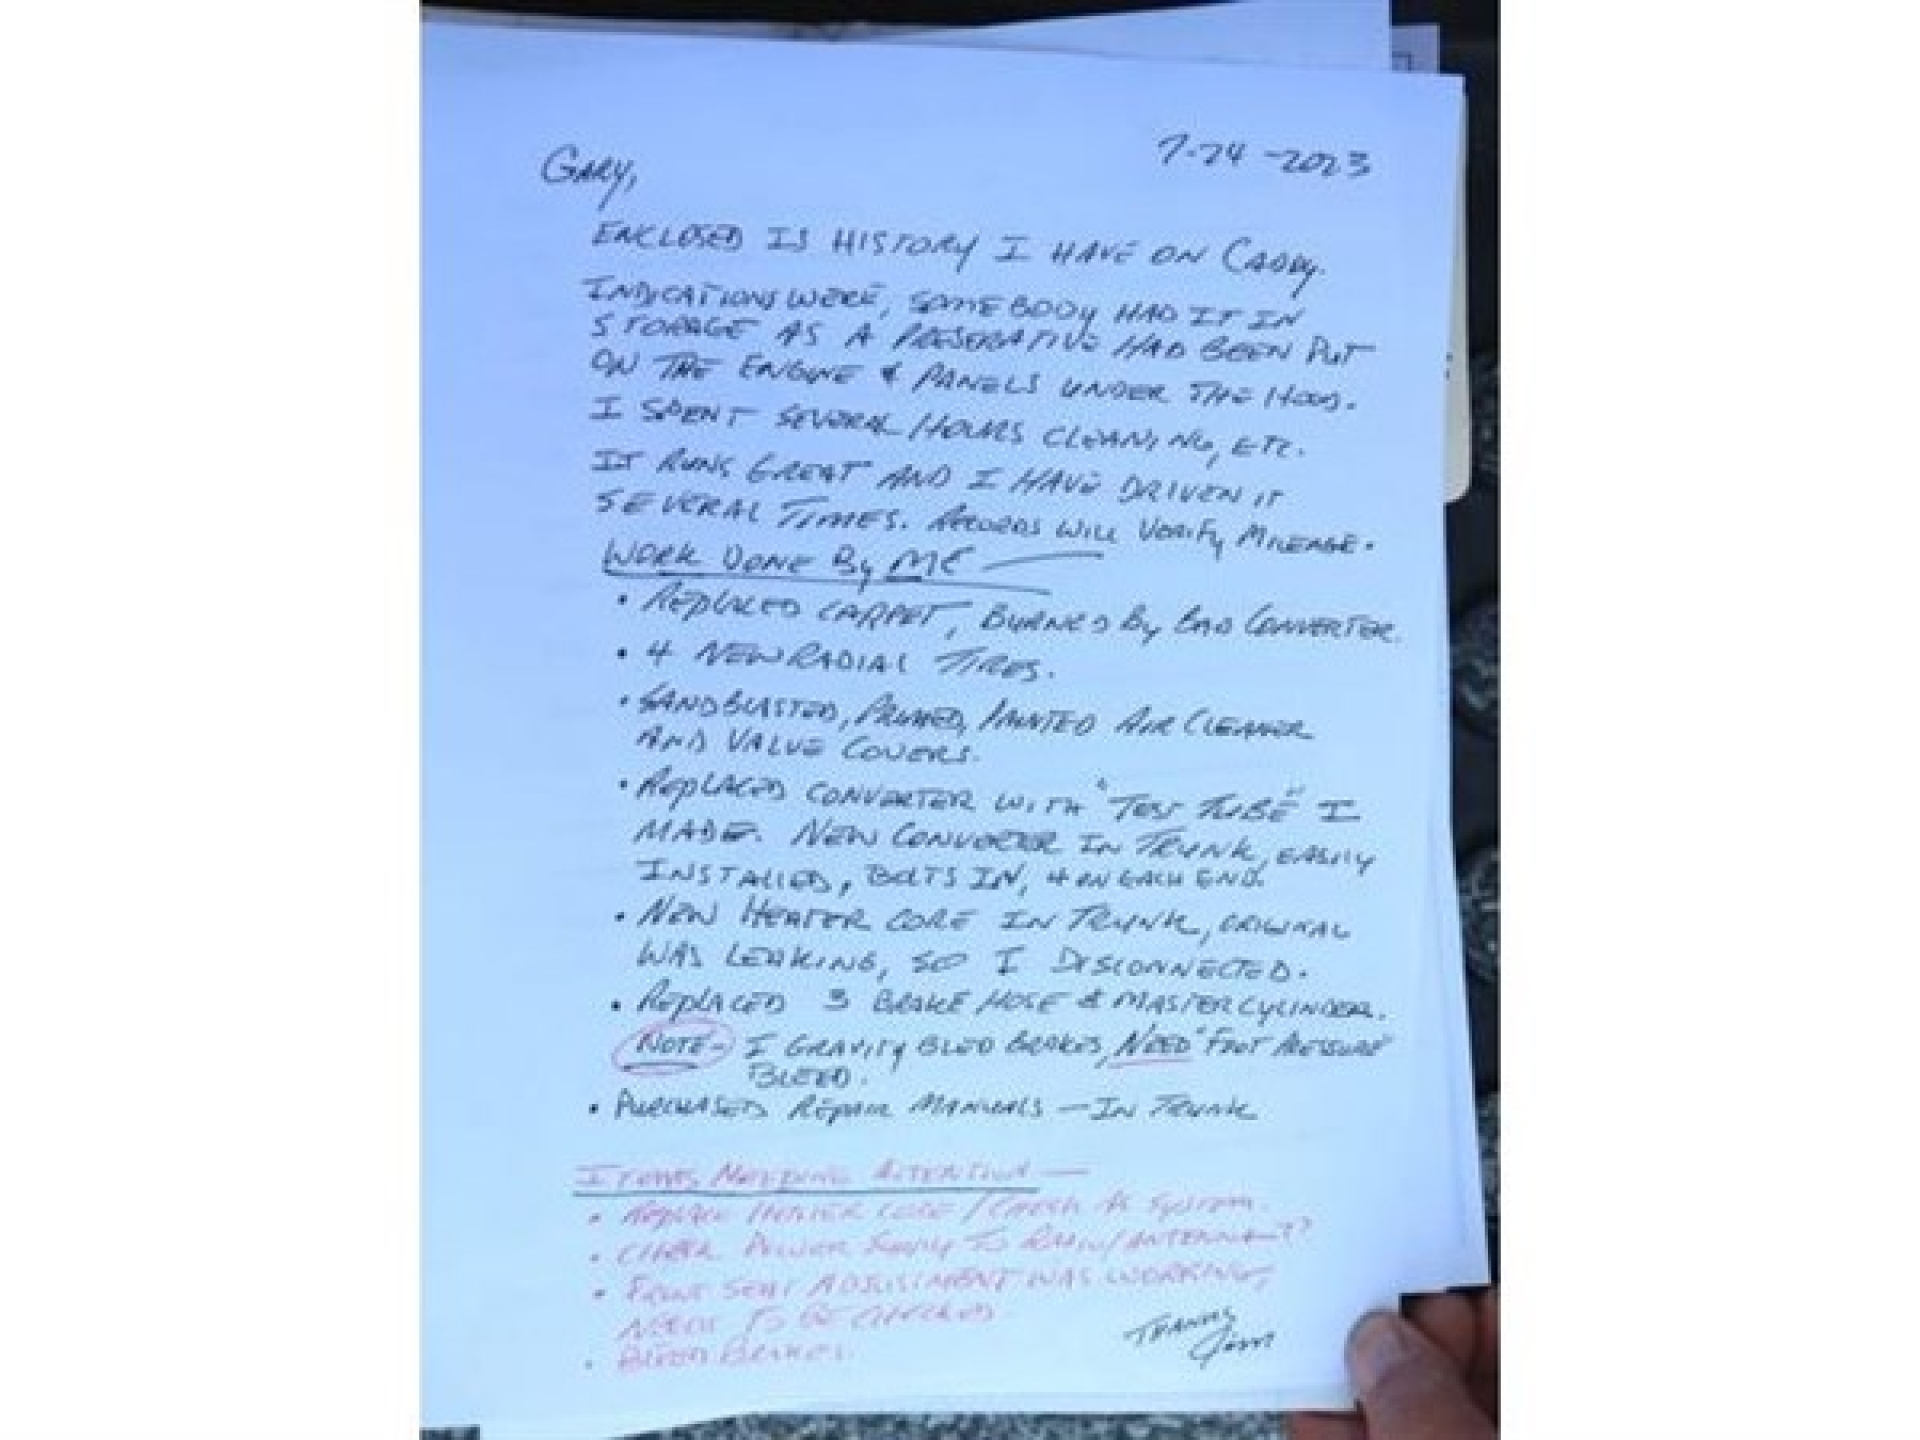 7-24-2023
GARY,
ENCLOSED IS HISTORY I HAVE ON CADDY.
INDICATIONS WERE, SOMEBODY HAD IT IN
STORAGE AS A PRESERATIVE HAD BEEN PUT
ON THE ENGINE & PANELS UNDER THE HOOD.
I SPENT SEVERAL HOURS CLEANING, ETC.
IT RUNS GREAT AND I HAVE DRIVEN IT
SEVERAL TIMES. RECORDS WILL VERIFY MILEAGE.
WORK DONE BY ME —
• REPLACED CARPET, BURNED BY BAD CONVERTER.
• 4 NEW RADIAL TIRES.
• SANDBLASTED, PRIMED, PAINTED AIR CLEANER
AND VALVE COVERS.
• REPLACED CONVERTER WITH "TEST TUBE" I
MADE. NEW CONVERTER IN TRUNK, EASILY
INSTALLED, BOLTS IN, 4 ON EACH END.
• NEW HEATER CORE IN TRUNK, ORIGINAL
WAS LEAKING, SO I DISCONNECTED.
• REPLACED 3 BRAKE HOSE & MASTER CYLINDER.
NOTE- I GRAVITY BLED BRAKES, NEED "FOOT PRESSURE"
BLEED.
• PURCHASED REPAIR MANUALS — IN TRUNK
ITEMS NEEDING ATTENTION —
• REPLACE HEATER CORE / CHECK AC SYSTEM.
• CHECK POWER SUPPLY TO RADIO/ANTENNA??
• FRONT SEAT ADJUSTMENT WAS WORKING,
NEEDS TO BE CHECKED.
• BLEED BRAKES.
THANKS
JIM